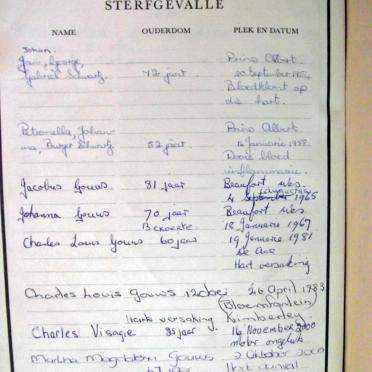 STERFGEVALLE
NAME OUDERDOM PLEK EN DATUM
Johan
George, Prins Albert
Gabriel Swartz 72 jaar 20 September 1954
Bloedklont op
die hart.
Petronella, Johan Prins Albert
na, Burger Swartz 52 jaar 1958
bloed
Jacobus Gouws. 81 jaar Beaufort Wes.
Augustus
4 September 1965
Johanna Gouws 70 jaar Beaufort Wes.
Beroerte 18 Januarie 1967
Charles Louis Gouws 60 jaar 19 Januarie 1981
De Aar
Hart versaking
Charles Louis Gouws 26 April 1983
(Bloemfontein)
Hart versaking Kimberley
Charles Visagie 35 jaar 16 November 2000
motor ongeluk
Martha Magdalena Gouws 2 Oktober
67 jaar Hart